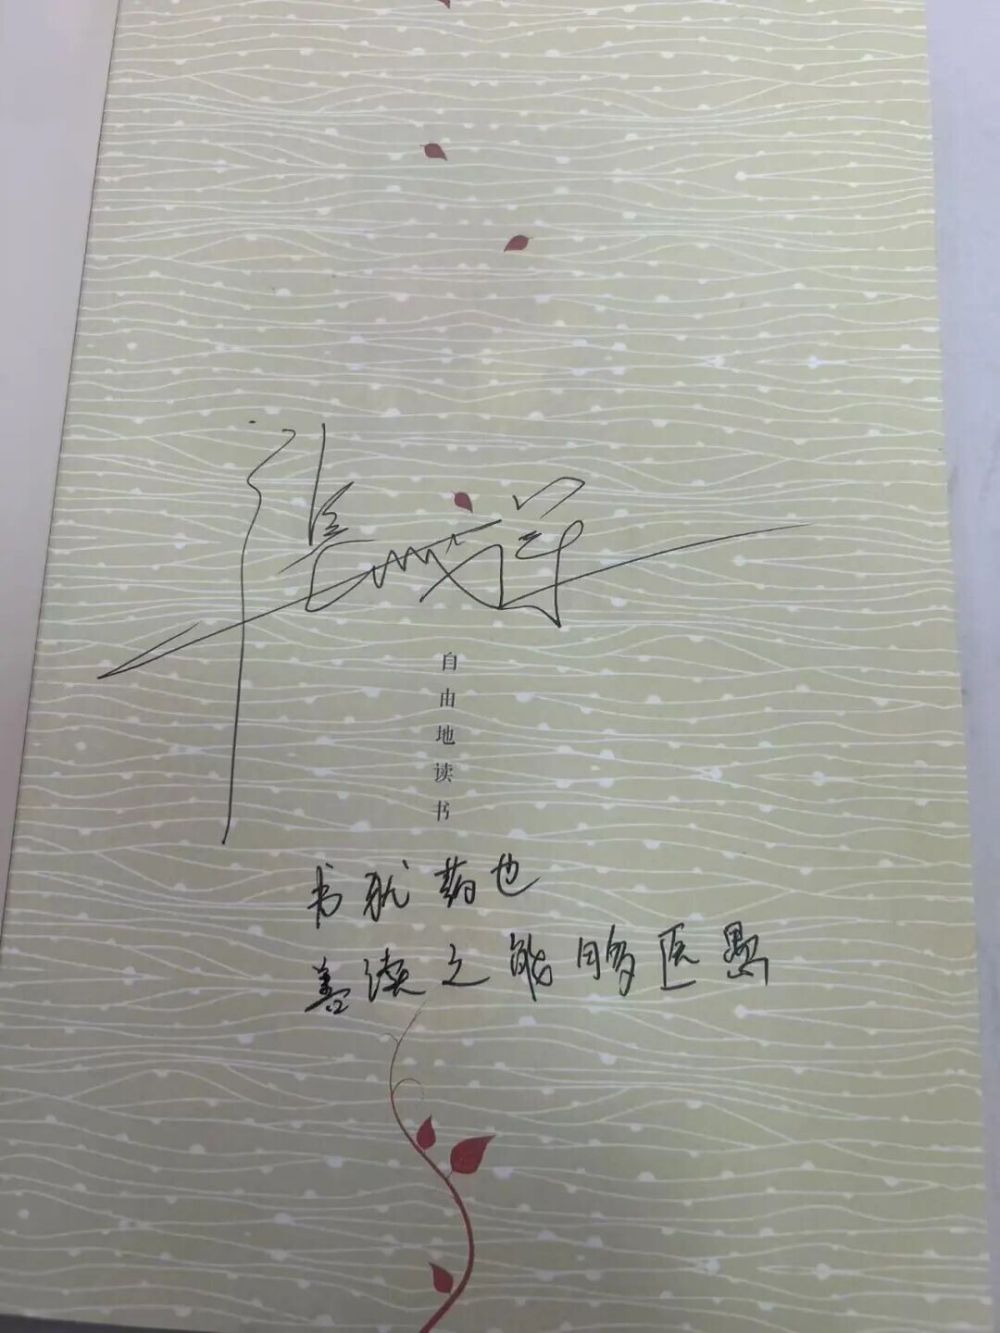 自由地读书
书犹药也
善读之能够医愚